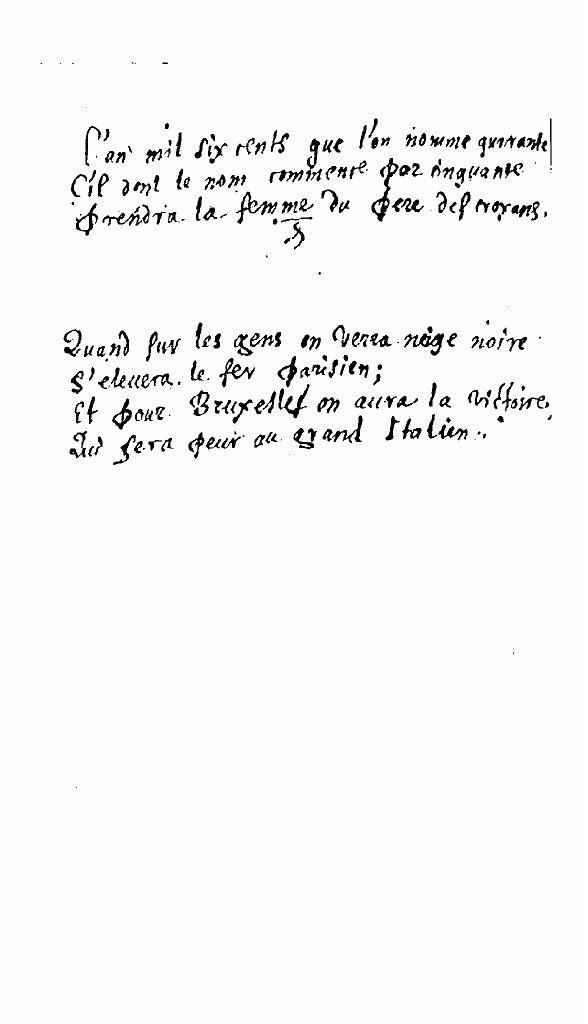 L'an mil six cents que l'on nomme quarante
C'il dont le nom commence par cinquante
Prendra la femme du Pere des croyans.
Quand sur les gens on verra neige noire
S'elevera le fer Parisien;
Et pour Bruxelles on aura la victoire,
Qui fera peur au grand Italien.